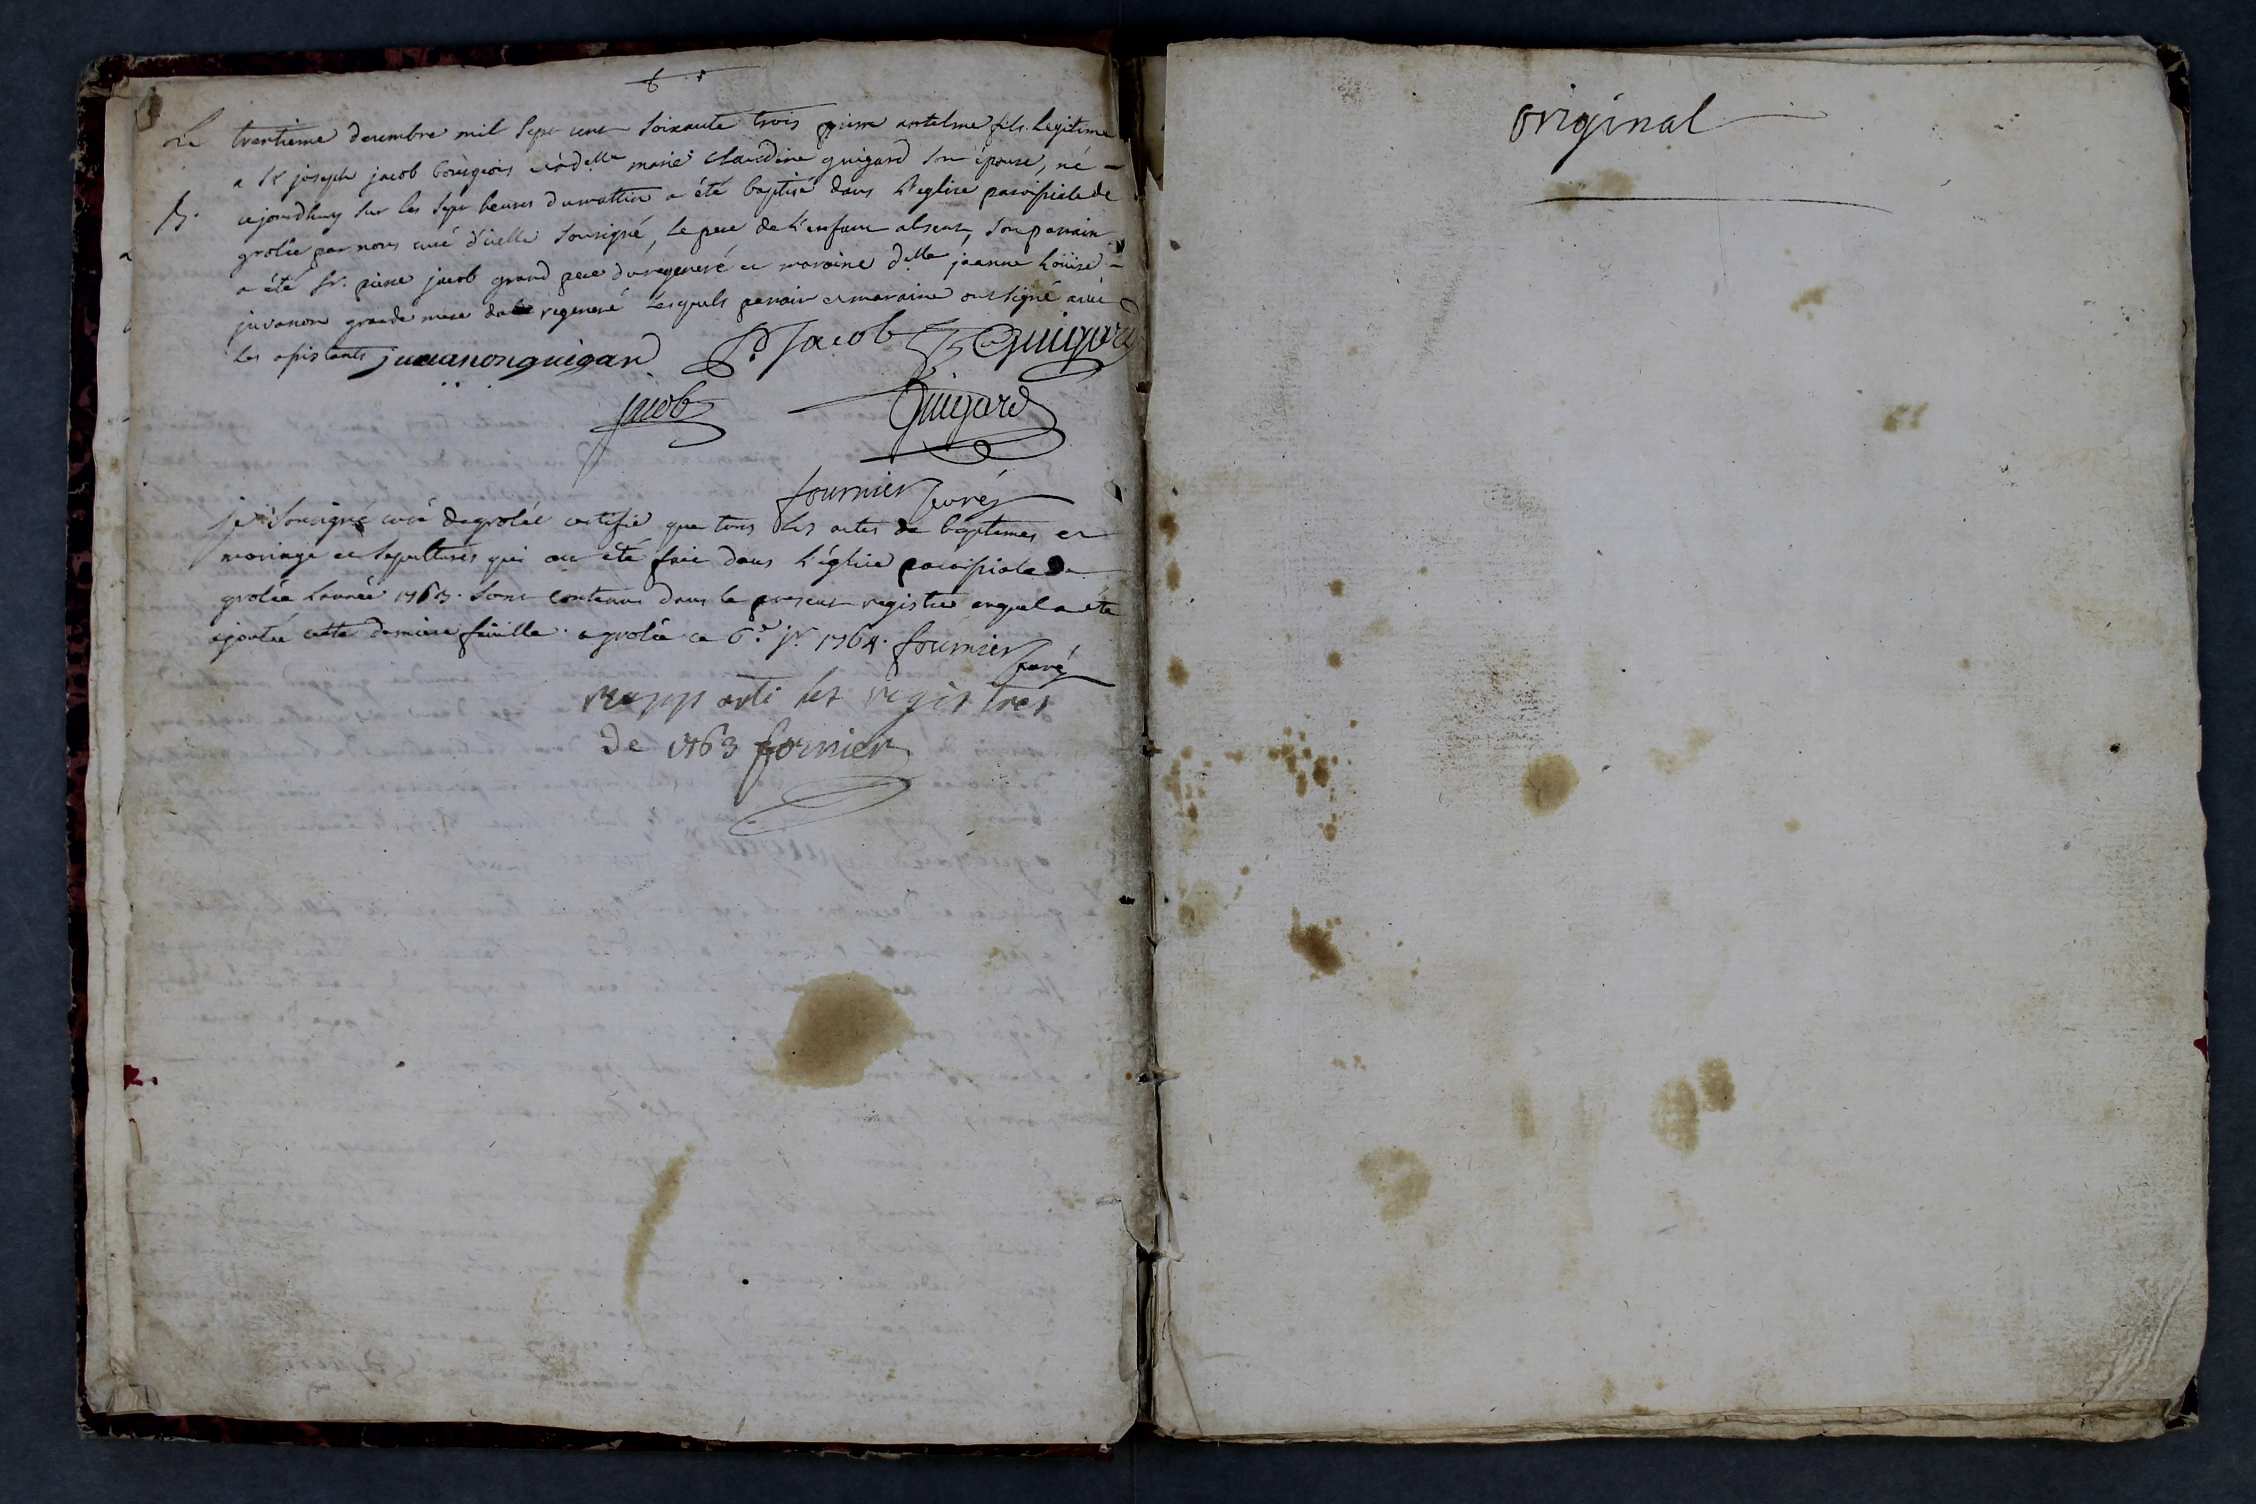 Le trentieme decembre mil sept cent soixante trois pierre antelme fils legitime
a Sr joseph jacob bourgeois et a delle marie claudine guigard son épouse, né
B. cejourdhuy sur les sept heures du mattin a été baptisé dans l'eglise paroissiale de
grolée par nous curé d'icelle soussigné, le pere de l'enfant absent, son parrain
a été Sr. pierre jacob grand pere du regeneré et maraine delle jeanne Loüise
juvanon grande mere du regeneré lesquels parrain et maraine ont signé avec
les assistants juvanon guigard P Jacob Guigard
jacob Guigard
fournier curé
je soussigné curé de grolée certifie que tous les actes de baptemes et
mariage et sepultures qui ont été fait dans l'église paroissiale de
grolée l'année 1763. sont contenus dans le present registre auquel a été
ajoutée cette derniere feüille. a grolée ce 6e jr. 1764. fournier curé
rapporté les registres
de 1763 fornier
original